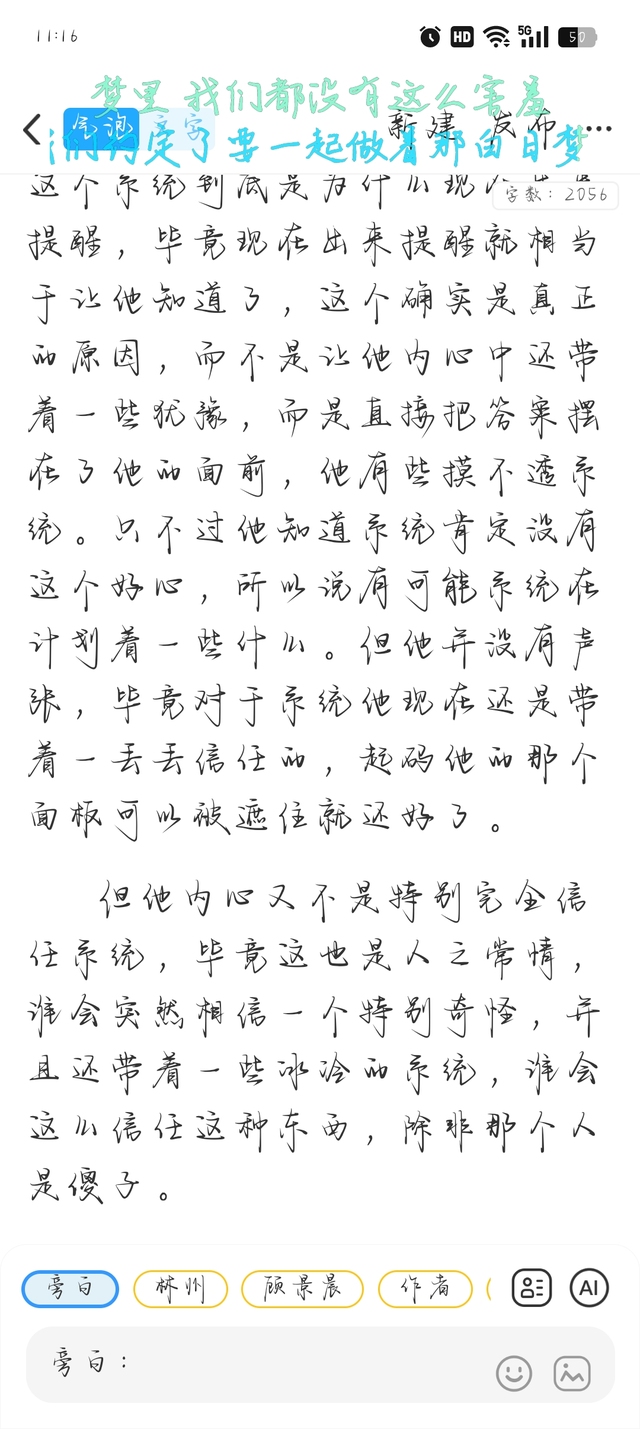 11:16
HD
5G
50
梦里 我们都没有这么害羞
我们约定了要一起做着那白日梦
会说
亲字
新建
发布
字数：2056
这个系统到底是为什么现
提醒，毕竟现在出来提醒就相当
于让他知道了，这个确实是真正
的原因，而不是让他内心中还带
着一些犹豫，而是直接把答案摆
在了他的面前，他有些摸不透系
统。只不过他知道系统肯定没有
这个好心，所以说有可能系统在
计划着一些什么。但他并没有声
张，毕竟对于系统他现在还是带
着一丢丢信任的，起码他的那个
面板可以被遮住就还好了。
但他内心又不是特别完全信
任系统，毕竟这也是人之常情，
谁会突然相信一个特别奇怪，并
且还带着一些冰冷的系统，谁会
这么信任这种东西，除非那个人
是傻子。
旁白
林州
顾景晨
作者
AI
旁白：